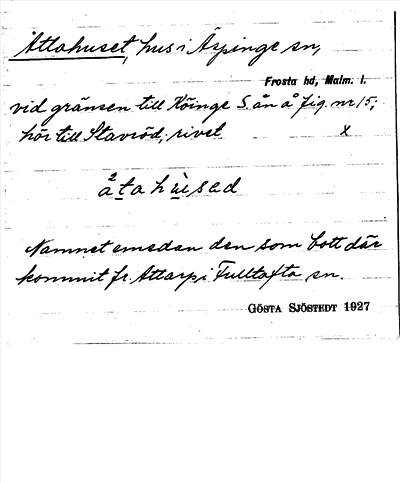 Attahuset, hus i Äspinge sn,
Frosta hd, Malm. l.
vid gränsen till Köinge S. ån å fig. nr 15;
hör till Stavröd, rivet x
Namnet emedan den som bott där
kommit fr. Attarp i Fulltofta sn.
GÖSTA SJÖSTEDT 1927